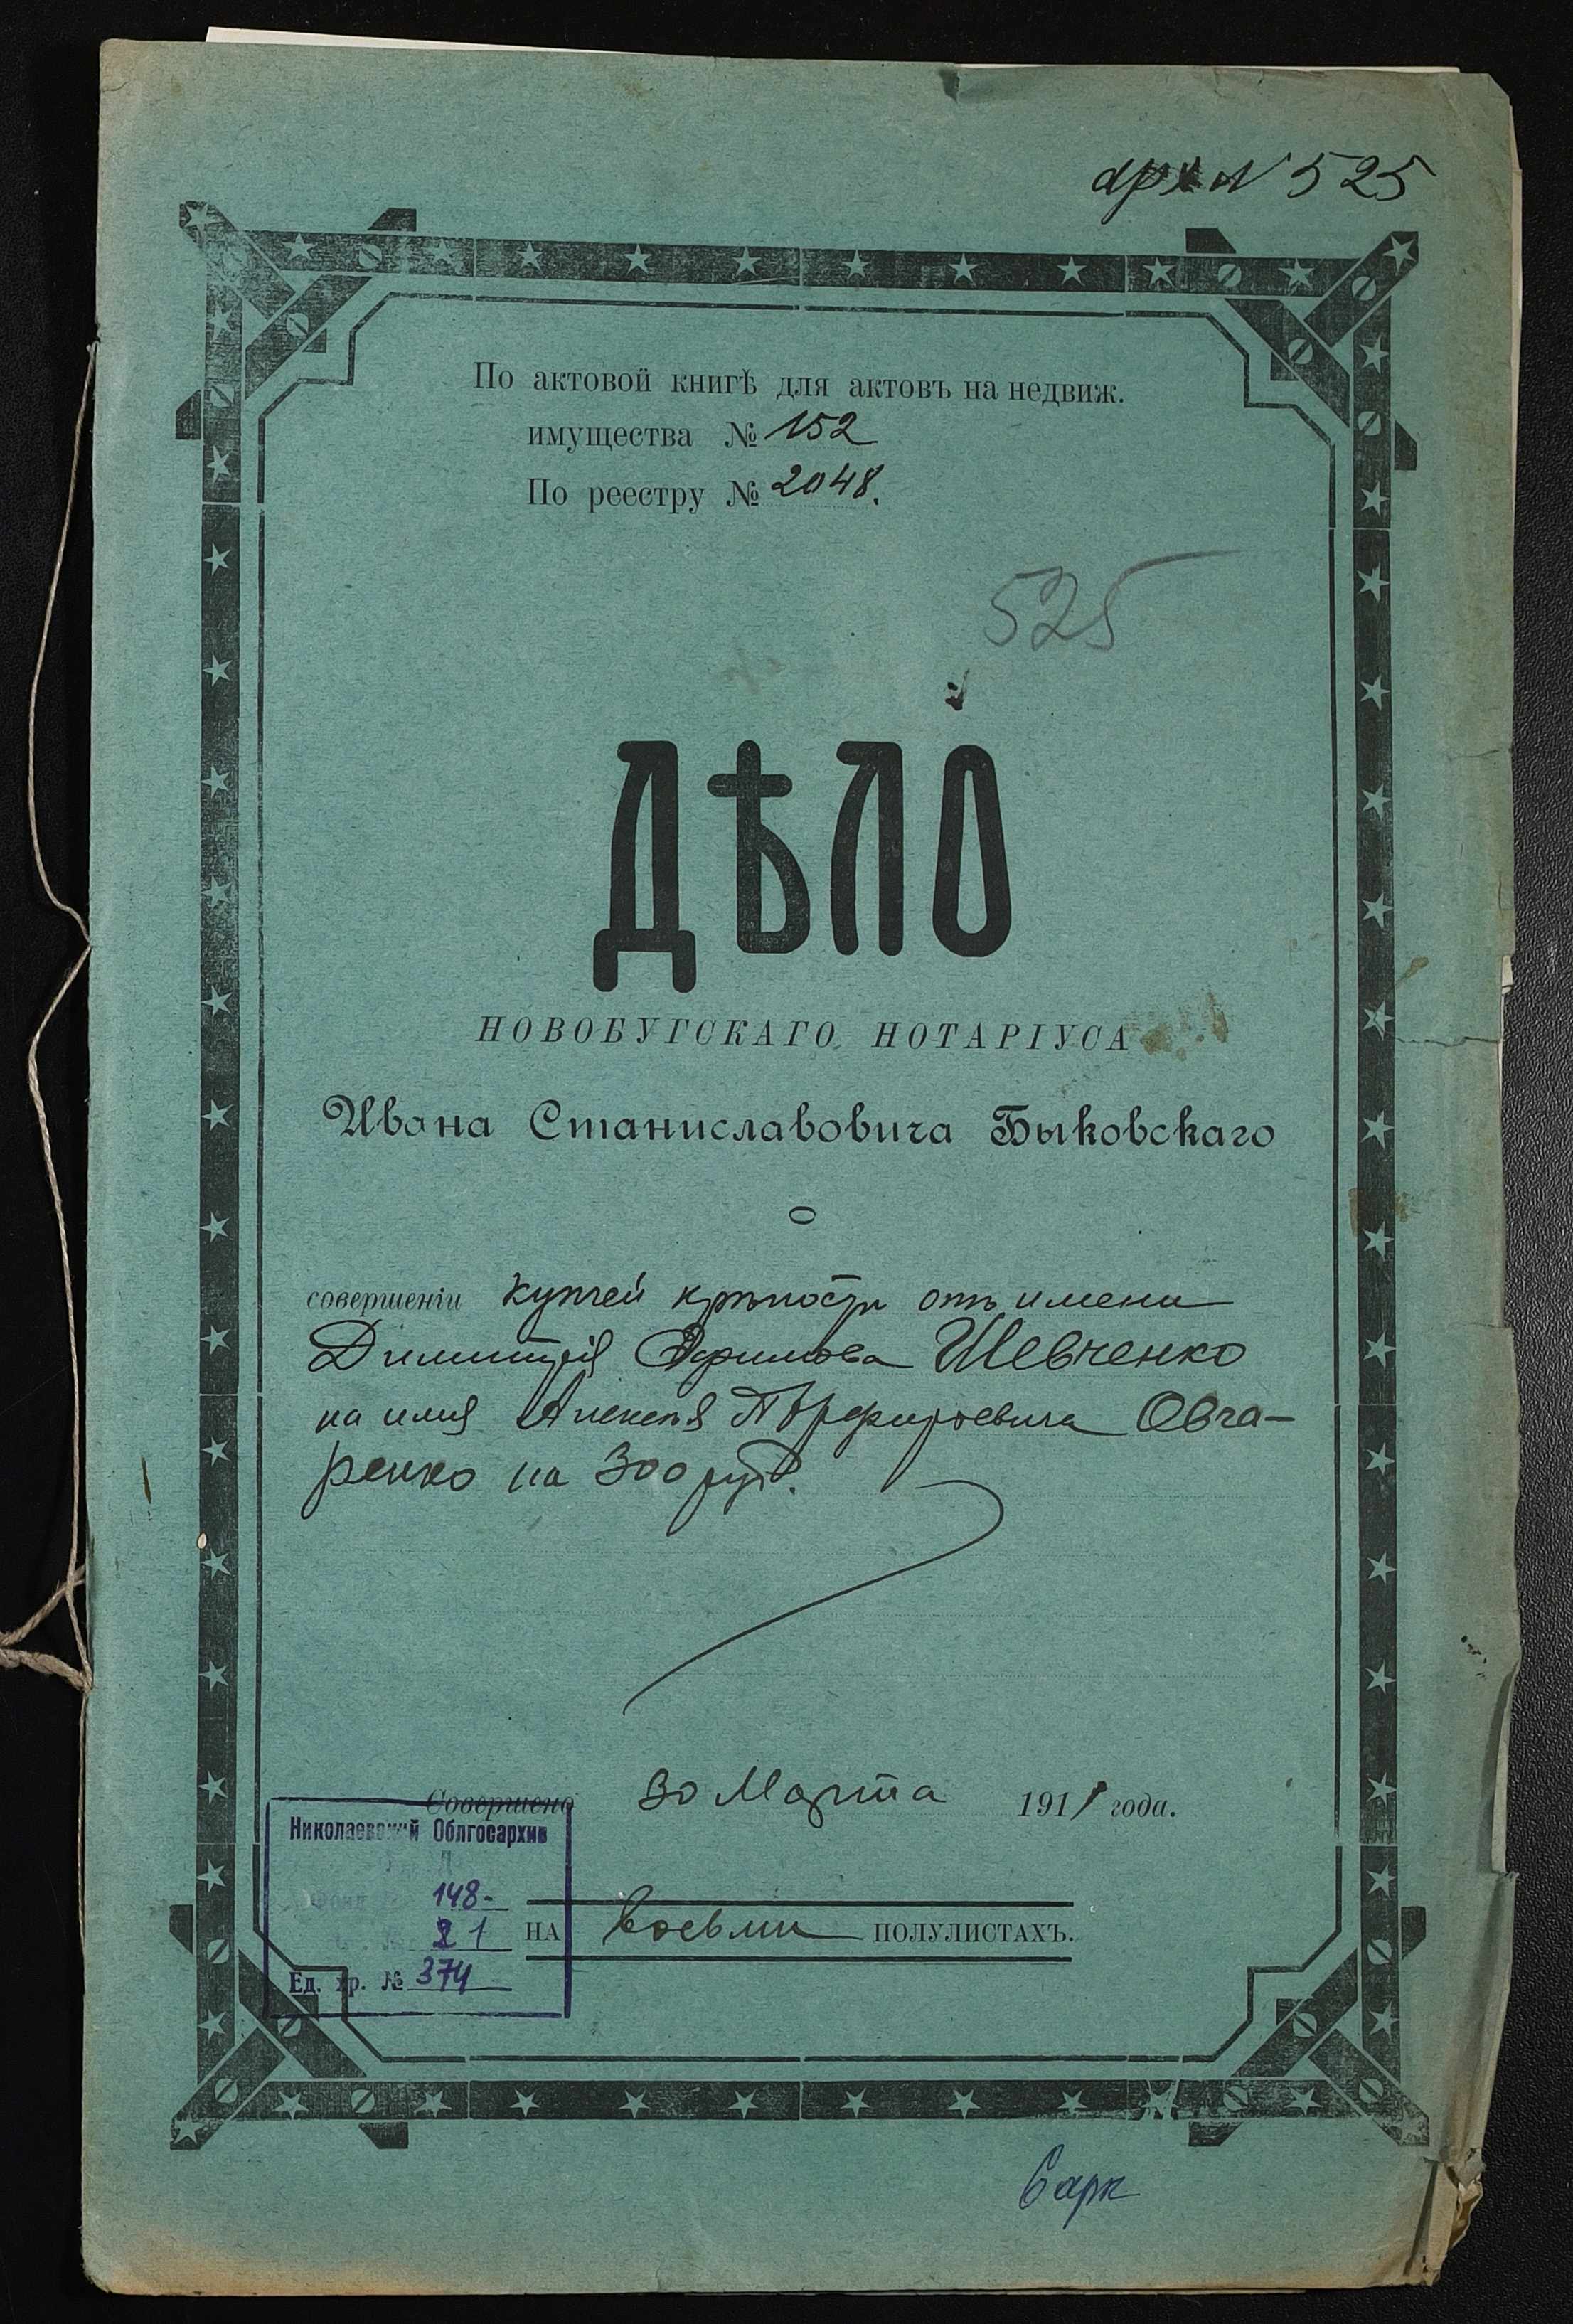 арх № 525
По актовой книгѣ для актовъ на недвиж.
имущества № 152
По реестру № 2048.
525
ДѢЛО
НОВОБУГСКАГО НОТАРІУСА
Ивана Станиславовича Быковскаго
О
совершеніи купчей крѣпости отъ имени
Димитрія Ефимова Шевченко
на имя Алексѣя Порфирьевича Овча-
ренко на 300 руб.
Совершено 30 Марта 1911 года.
Николаевский Облгосархив
Фонд 148-
21
Ед. хр. № 374
НА восьми ПОЛУЛИСТАХЪ.
6 арк